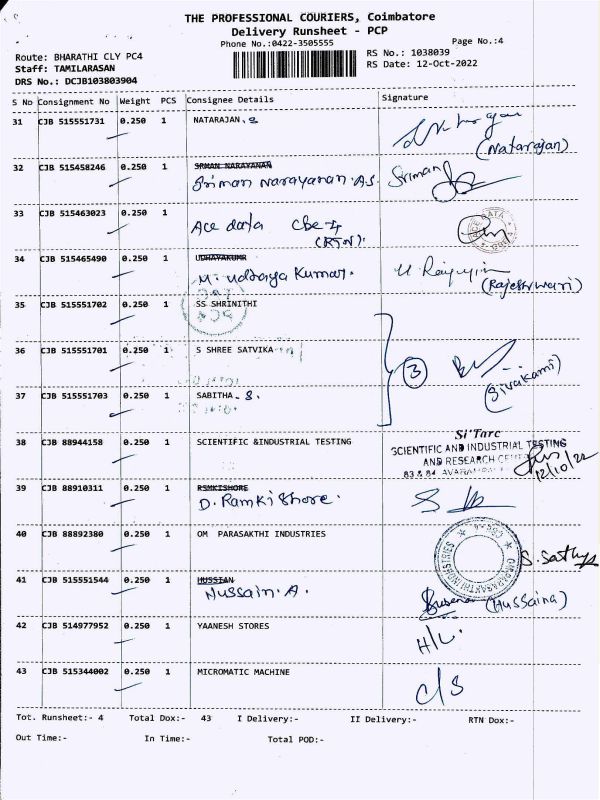 THE PROFESSIONAL COURIERS, Coimbatore
Delivery Runsheet - PCP
Phone No.:0422-3505555
Page No.:4
Route: BHARATHI CLY PC4
Staff: TAMILARASAN
DRS No.: DCJB103803904
RS No.: 1038039
RS Date: 12-Oct-2022
S No Consignment No Weight PCS Consignee Details Signature
31 CJB 515551731 0.250 1 NATARAJAN. S
(Natarajan)
32 CJB 515458246 0.250 1 SRMAN NARAYANAN
Sriman Narayanan. A.S. Sriman
33 CJB 515463023 0.250 1
Ace data Cbe-4
(RTN).
34 CJB 515465490 0.250 1 UDHAYAKUMR
M. Udhaya Kumar.
(Rajeshwari)
35 CJB 515551702 0.250 1 SS SHRINITHI
36 CJB 515551701 0.250 1 S SHREE SATVIKA
3
(Sivakami)
37 CJB 515551703 0.250 1 SABITHA. S.
38 CJB 88944158 0.250 1 SCIENTIFIC &INDUSTRIAL TESTING
Si'Tarc
SCIENTIFIC AND INDUSTRIAL TESTING
AND RESEARCH CENTRE
83 & 84
12/10/22
39 CJB 88910311 0.250 1 RSMKISHORE
D. Ramkishore.
40 CJB 88892380 0.250 1 OM PARASAKTHI INDUSTRIES
OM PARASAKTHI INDUSTRIES
CBE-4
S. Sathya
41 CJB 515551544 0.250 1 HUSSIAN
Hussain. A.
(Hussaina)
42 CJB 514977952 0.250 1 YAANESH STORES
H/L.
43 CJB 515344002 0.250 1 MICROMATIC MACHINE
C/S
Tot. Runsheet:- 4 Total Dox:- 43 I Delivery:- II Delivery:- RTN Dox:-
Out Time:- In Time:- Total POD:-